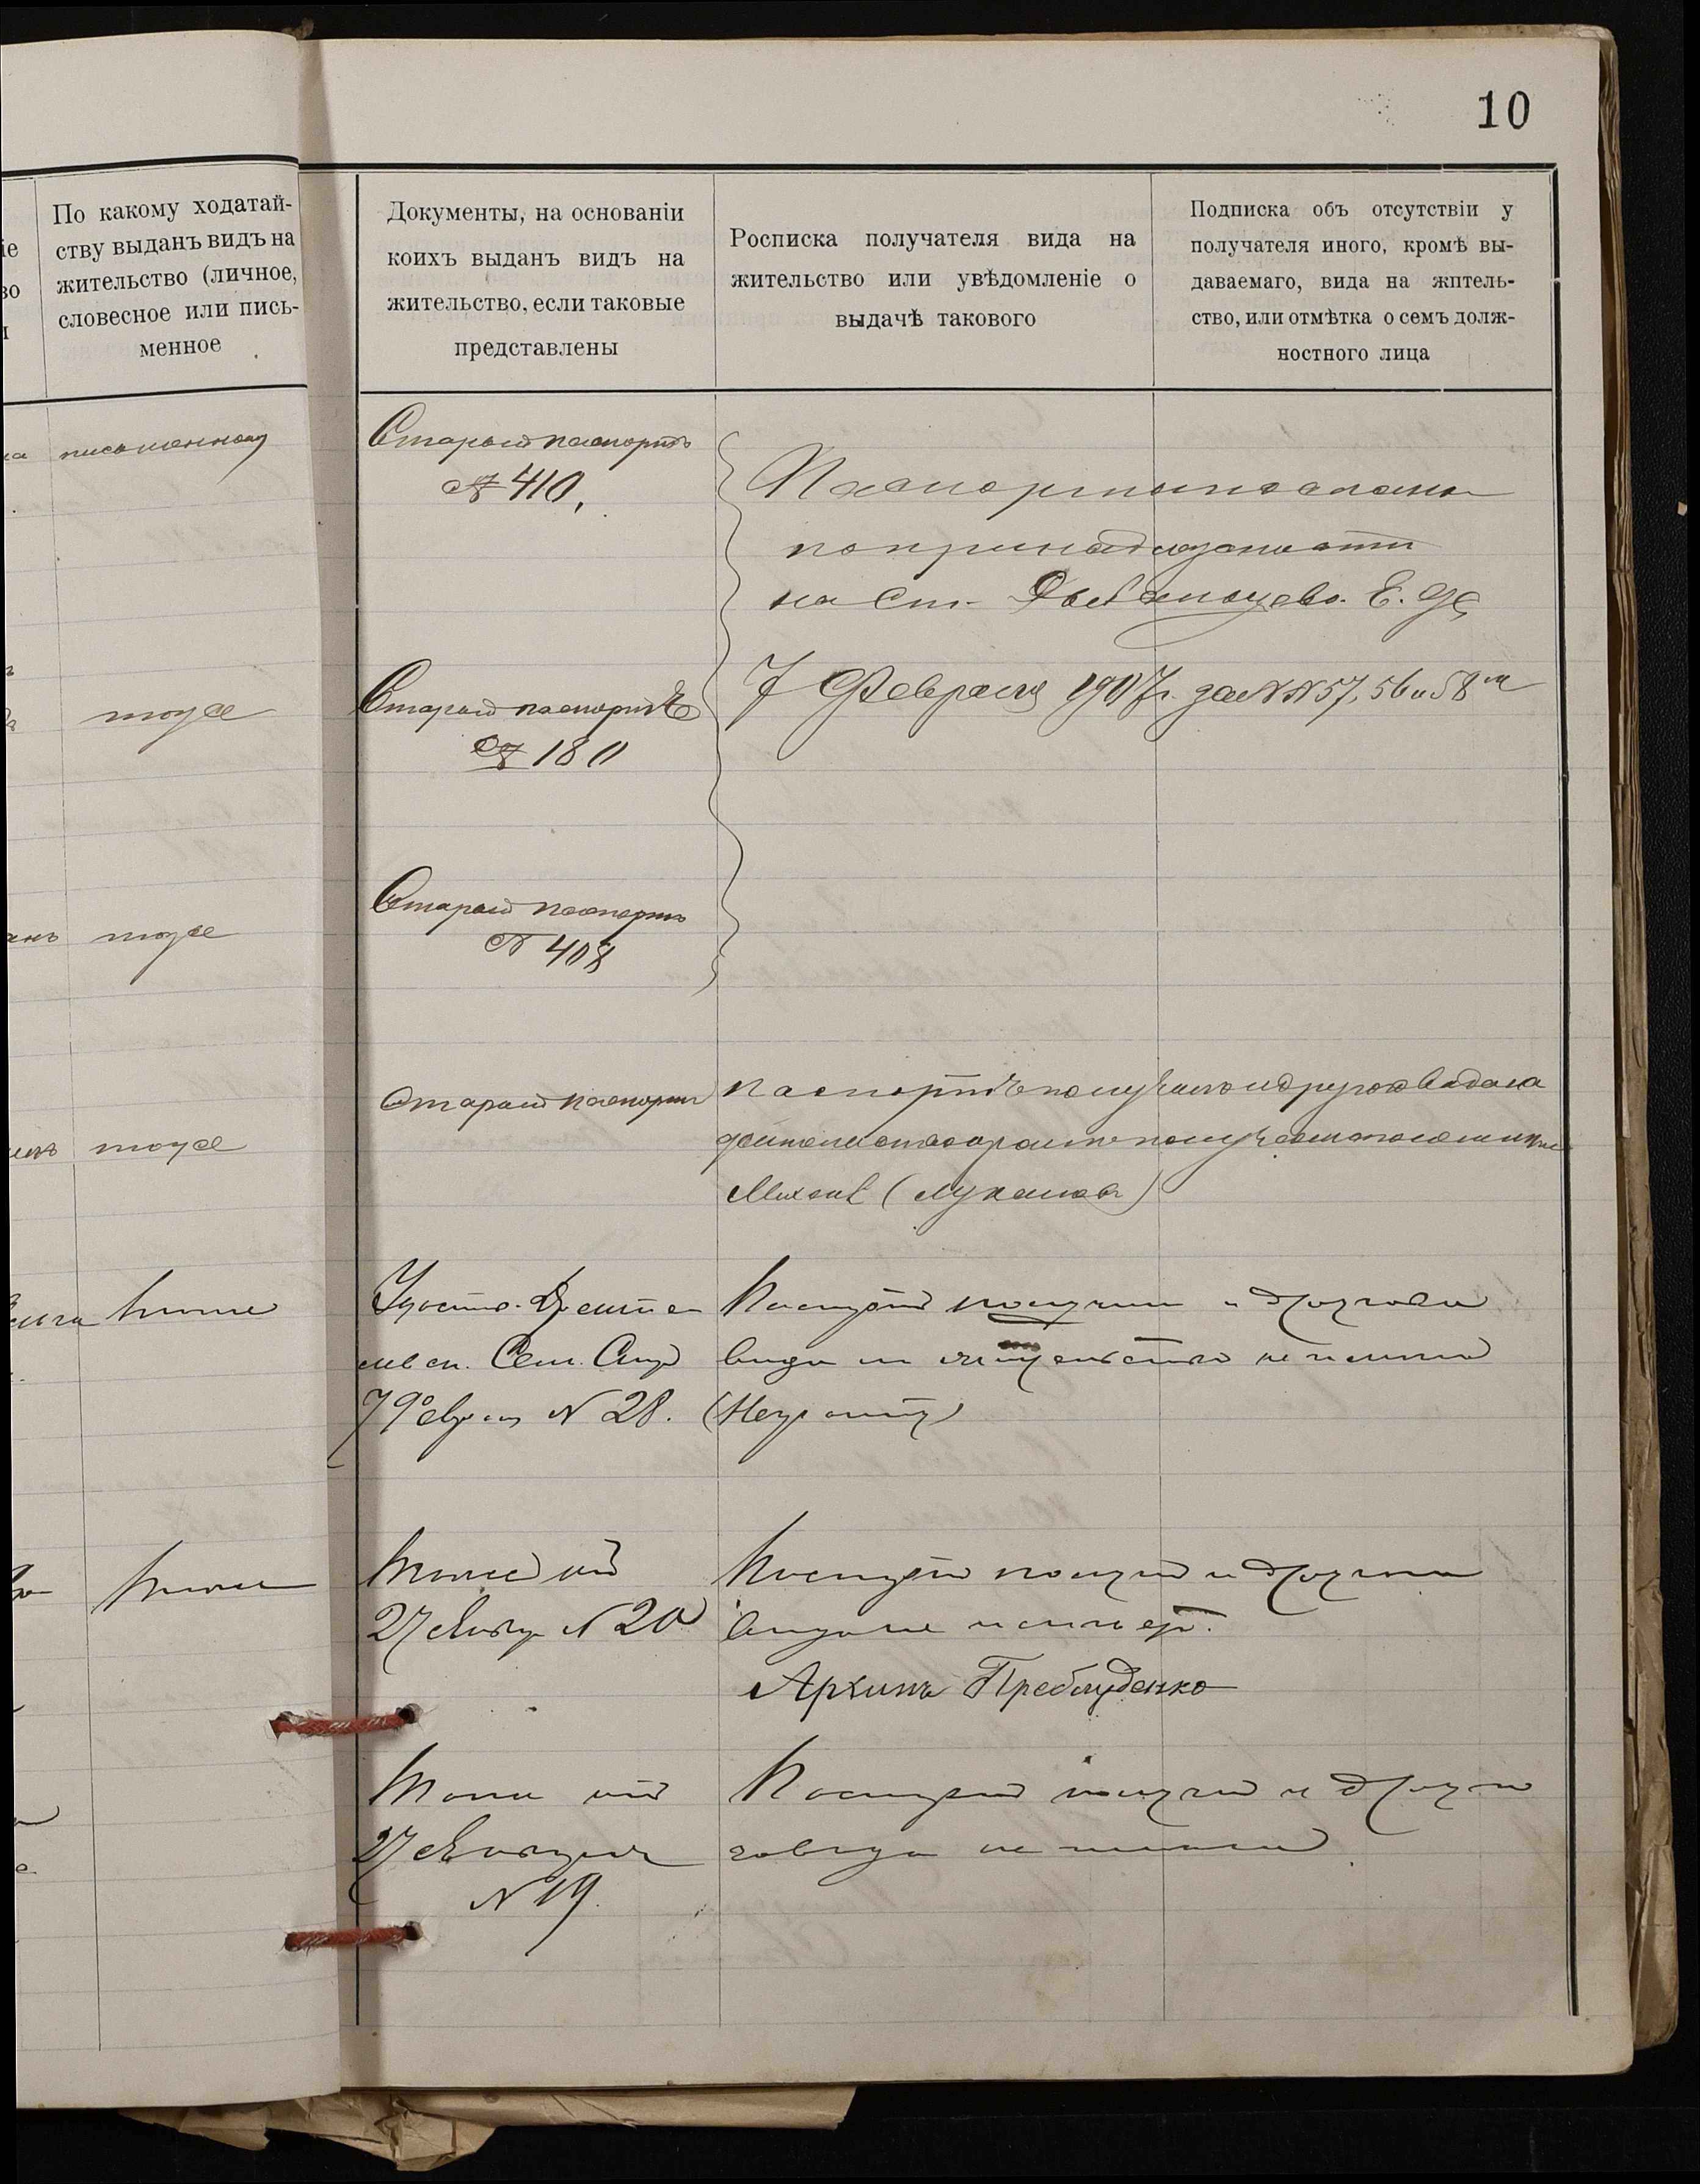 10
По какому ходатай-
ству выданъ видъ на
жительство (личное,
словесное или пись-
менное
Документы, на основаніи
коихъ выданъ видъ на
жительство, если таковые
представлены
Росписка получателя вида на
жительство или увѣдомленіе о
выдачѣ такового
Подписка объ отсутствіи у
получателя иного, кромѣ вы-
даваемаго, вида на жптель-
ство, или отмѣтка о семъ долж-
ностного лица
письменному
Старый паспортъ
№ 410,
Паспорты посланы
по принадлежности
на ст. Дебальцево Е. ж. д.
7 Февраля 1907 г. за №№ 57, 56 и 58
тоже
Старый паспортъ
№ 180
тоже
Старый паспортъ
№ 408
тоже
Старый паспортъ
Паспортъ получилъ и другого вида на
Михаил
тоже
Удост.
Сел.
7 Февраля № 28.
Паспортъ получил и другого
вида на жительство не имею
тоже
Тоже от
27 Января № 20
Паспортъ получил и другого
вида не имеет.
Архипъ Преблуденко
Тоже от
27 Января
№ 19.
Паспортъ получил и друго
го вида не имею